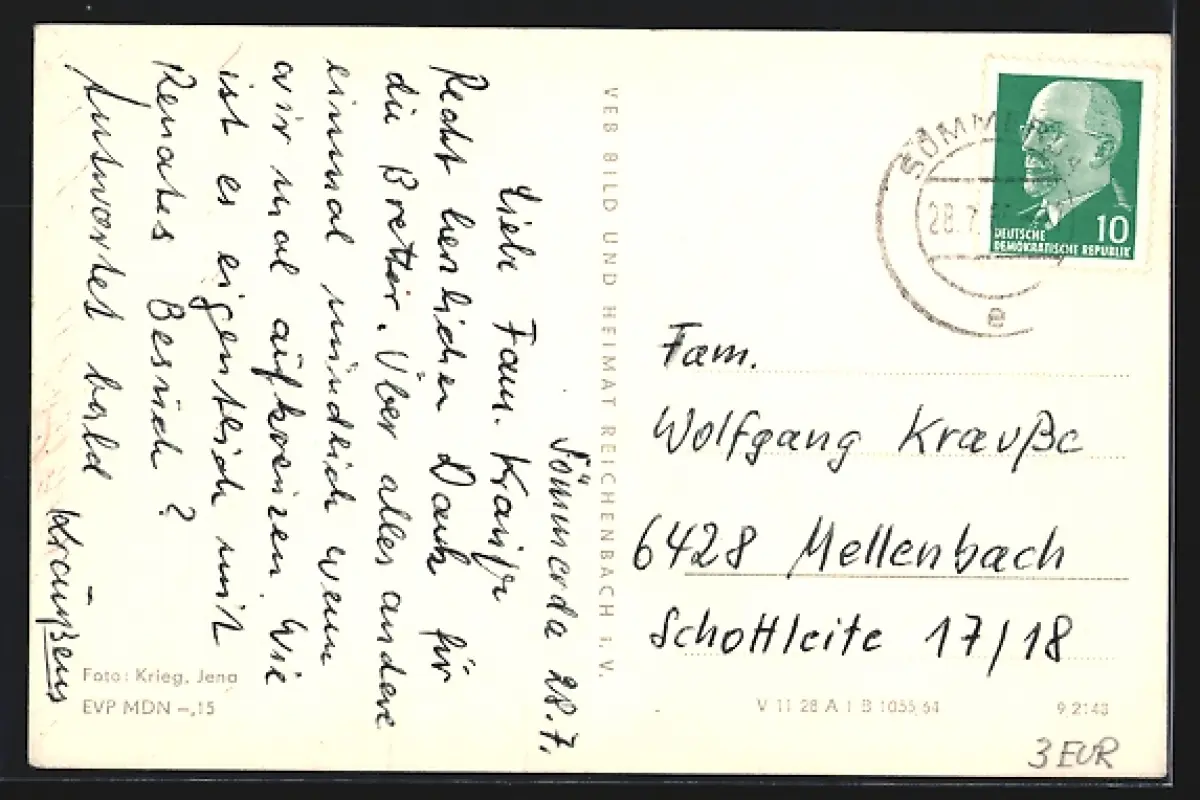 Sömmerda 28.7.
Liebe Fam. Krauße
Recht herzlichen Dank für
die Bretter. Über alles andere
einmal mündlich wenn
wir mal aufkreuzen. Wie
ist es eigentlich mit
Renates Besuch?
Antwortet bald
Kraußens
Foto: Krieg, Jena
EVP MDN -,15
VEB BILD UND HEIMAT REICHENBACH i. V.
SÖMMERDA
28.7.
e
DEUTSCHE
DEMOKRATISCHE REPUBLIK
10
Fam.
Wolfgang Krauße
6428 Mellenbach
Schottleite 17/18
V 11 28 A 1 B 1055/64
9 2143
3 EUR